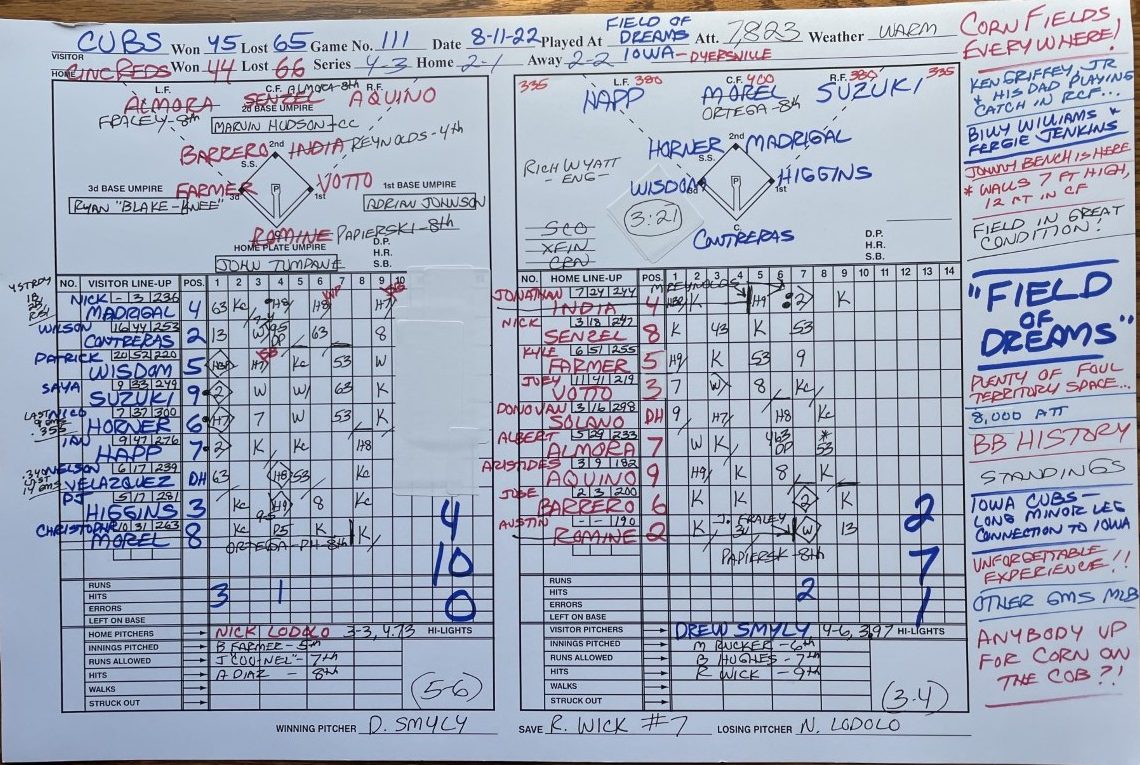 VISITOR CUBS Won 45 Lost 65 Game No. 111 Date 8-11-22 Played At FIELD OF DREAMS Att. 7,823 Weather WARM
HOME CINC REDS Won 44 Lost 66 Series 4-3 Home 2-1 Away 2-2 IOWA-DYERSVILLE
L.F. C.F. ALMORA-8th R.F.
ALMORA SENZEL AQUINO
FRALEY-8th
2d BASE UMPIRE
MARVIN HUDSON-CC
BARRERO 2nd INDIA REYNOLDS-4th
S.S.
3d BASE UMPIRE FARMER 3d P 1st VOTTO 1st BASE UMPIRE
RYAN "BLAKE-KNEE" ADRIAN JOHNSON
ROMINE PAPIERSKI-8th
HOME PLATE UMPIRE D.P.
H.R.
S.B.
JOHN TUMPANE
335 L.F. 380 C.F. 400 R.F. 380 335
HAPP MOREL SUZUKI
ORTEGA-8th
HORNER 2nd MADRIGAL
S.S.
RICH WYATT
-ENG-
WISDOM 3d P 1st HIGGINS
3:21
SCO
XFIN
CRN
C.
CONTRERAS D.P.
H.R.
S.B.
NO. VISITOR LINE-UP POS. 1 2 3 4 5 6 7 8 9 10
NICK - 3 236
MADRIGAL 4 63 Kc H8 6 H8 H7
WILSON 16 44 253
CONTRERAS 2 13 W DP 63 8
PATRICK 20 52 220
WISDOM 5 HBP H7 Kc 53 W
SAYA 9 33 249
SUZUKI 9 2 W W 63 K
NICO 7 37 300
HORNER 6 H7 7 W 53 K
IAN 9 47 276
HAPP 7 2 K Kc H8
NELSON 6 17 239
VELAZQUEZ DH 63 H8 53 Kc
PJ 5 17 281
HIGGINS 3 Kc H9 8 Kc 4
CHRISTOPHR 10 31 263
MOREL 8 Kc D5 K K
ORTEGA-PH-8th 10
RUNS
HITS 3 1 0
ERRORS
LEFT ON BASE
HOME PITCHERS NICK LODOLO 3-3, 4.73 HI-LIGHTS
INNINGS PITCHED B FARMER-5th
RUNS ALLOWED
HITS A DIAZ - 8th
WALKS
STRUCK OUT
(5-6)
NO. HOME LINE-UP POS. 1 2 3 4 5 6 7 8 9 10 11 12 13 14
M REYNOLDS
JONATHAN 7 24 244
INDIA 4 HBP K H9 2 K
NICK 3 18 247
SENZEL 8 K 43 K 53
KYLE 6 51 255
FARMER 5 H9 K 53 9
JOEY 11 41 219
VOTTO 3 7 W 8 Kc
DONOVAN 3 16 298
SOLANO DH 9 H7 H8 Kc
ALBERT 5 29 233
ALMORA 7 W K 463 DP * 53
ARISTIDES 3 9 182
AQUINO 9 H9 K 8 K
JOSE 2 3 200
BARRERO 6 K K 2 K 2
AUSTIN - - 190
ROMINE 2 K J. FRALEY 34 W 13
PAPIERSK-8th 7
RUNS
HITS 2 1
ERRORS
LEFT ON BASE
VISITOR PITCHERS DREW SMYLY 4-6, 3.97 HI-LIGHTS
INNINGS PITCHED M RUCKER-6th
RUNS ALLOWED B HUGHES-7th
HITS R WICK-9th
WALKS
STRUCK OUT
(3-4)
WINNING PITCHER D. SMYLY SAVE R. WICK #7 LOSING PITCHER N. LODOLO
CORN FIELDS
EVERYWHERE!
KEN GRIFFEY, JR
+ HIS DAD PLAYING
CATCH IN RCF...
BILLY WILLIAMS +
FERGIE JENKINS
JONNY BENCH IS HERE
* WALLS 7 FT HIGH,
12 FT IN CF
FIELD IN GREAT
CONDITION!
"FIELD
OF
DREAMS"
PLENTY OF FOUL
TERRITORY SPACE...
8,000 ATT
BB HISTORY
STANDINGS
IOWA CUBS-
LONG MINOR LEG
CONNECTION TO IOWA
UNFORGETTABLE
EXPERIENCE!!
OTHER GMS MLB
ANYBODY UP
FOR CORN ON
THE COB?!